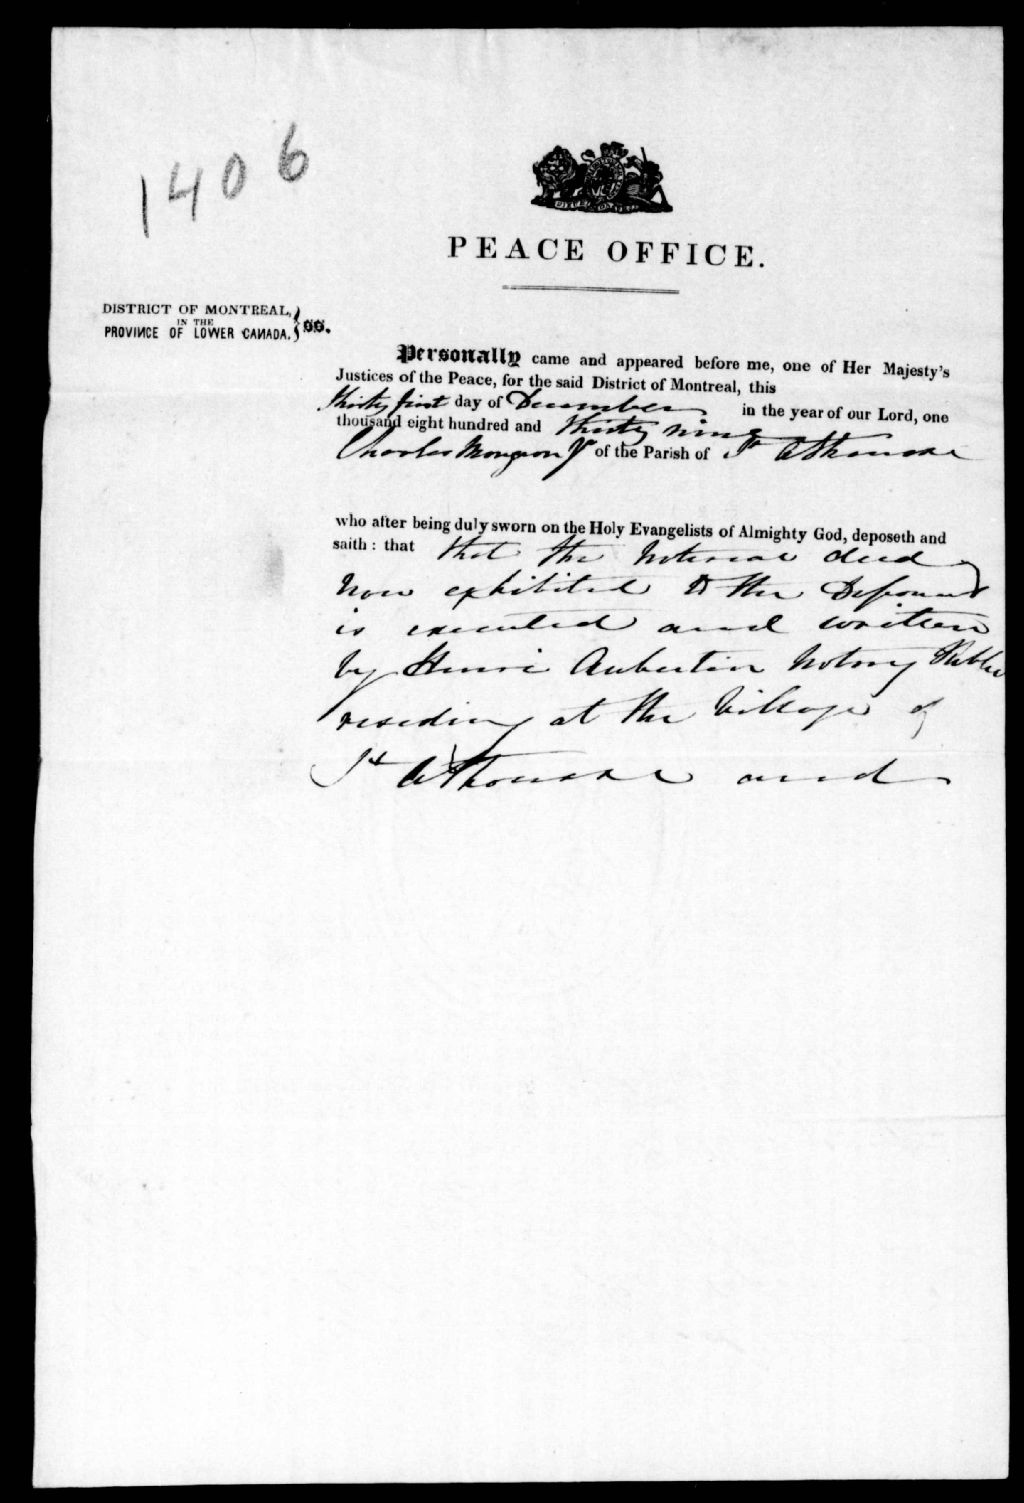 1406
PEACE OFFICE.
DISTRICT OF MONTREAL,
IN THE
PROVINCE OF LOWER CANADA.
ss.
Personally came and appeared before me, one of Her Majesty's
Justices of the Peace, for the said District of Montreal, this
thirty first day of December in the year of our Lord, one
thousand eight hundred and thirty nine
Charles Mongeon Jr of the Parish of St Athanase
who after being duly sworn on the Holy Evangelists of Almighty God, deposeth and
saith: that that the Noterial deed
now exhibited to the Deponent
is executed and written
by Henri Aubertin Notary Public
residing at the Village of
St Athanase and